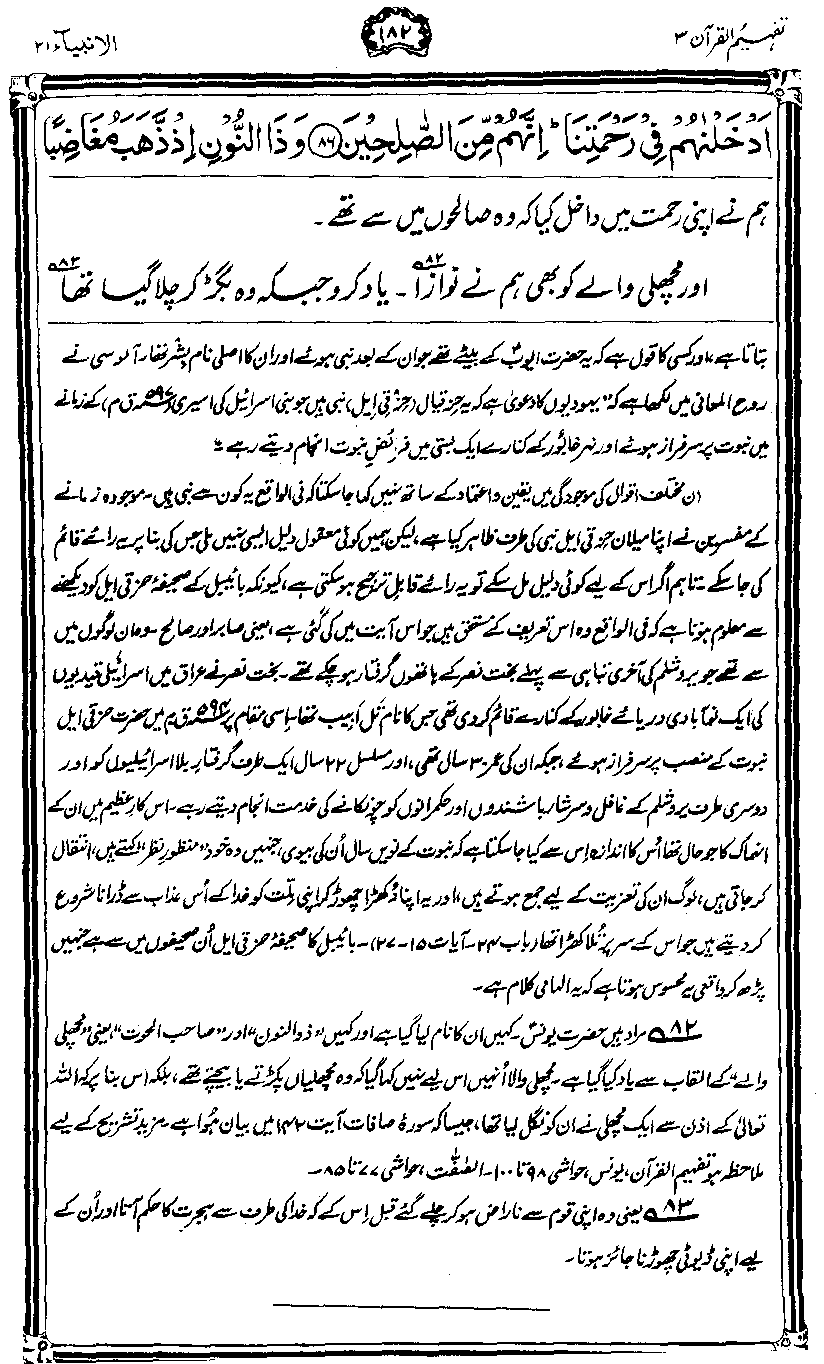 تفہیم القرآن ۳
۱۸۲
الانبیآء ۲۱
اَدْخَلْنٰهُمْ فِیْ رَحْمَتِنَا ؕ اِنَّهُمْ مِّنَ الصّٰلِحِیْنَ ﴿۸۶﴾ وَ ذَا النُّوْنِ اِذْ ذَّهَبَ مُغَاضِبًا
ہم نے اپنی رحمت میں داخل کیا کہ وہ صالحوں میں سے تھے۔
اور مچھلی والے کو بھی ہم نے نوازا ۸۲۔ یاد کرو جبکہ وہ بگڑ کر چلا گیا تھا ۸۳
بتاتا ہے، اور کسی کا قول ہے کہ یہ حضرت ایوبؑ کے بیٹے تھے جو ان کے بعد نبی ہوئے اور ان کا اصلی نام بِشر تھا۔ آلوسی نے
روح المعانی میں لکھا ہے کہ "یہودیوں کا دعویٰ ہے کہ یہ حِزقیال (حِزقی اِیل) نبی ہیں جو بنی اسرائیل کی اسیری (۵۹۷ ق م) کے زمانے
میں نبوت پر سرفراز ہوئے اور نہر خابور کے کنارے ایک بستی میں فرائض نبوت انجام دیتے رہے۔"
ان مختلف اقوال کی موجودگی میں یقین و اعتماد کے ساتھ نہیں کہا جا سکتا کہ فی الواقع یہ کون سے نبی ہیں۔ موجودہ زمانے
کے مفسرین نے اپنا میلان حِزقی ایل نبی کی طرف ظاہر کیا ہے، لیکن ہمیں کوئی معقول دلیل ایسی نہیں ملی جس کی بنا پر یہ رائے قائم
کی جا سکے۔ تاہم اگر اس کے لیے کوئی دلیل مل سکے تو یہ رائے قابلِ ترجیح ہو سکتی ہے، کیونکہ بائیبل کے صحیفۂ حزقی ایل کو دیکھنے
سے معلوم ہوتا ہے کہ فی الواقع وہ اس تعریف کے مستحق ہیں جو اس آیت میں کی گئی ہے، یعنی صابر اور صالح۔ وہ ان لوگوں میں
سے تھے جو یروشلم کی آخری تباہی سے پہلے بخت نصر کے ہاتھوں گرفتار ہو چکے تھے۔ بخت نصر نے عراق میں اسرائیلی قیدیوں
کی ایک نو آبادی دریائے خابور کے کنارے قائم کر دی تھی جس کا نام تل اَبیب تھا۔ اِسی مقام پر ۵۹۴ ق م میں حضرت حزقی ایل
نبوت کے منصب پر سرفراز ہوئے، جبکہ ان کی عمر ۳۰ سال تھی، اور مسلسل ۲۲ سال ایک طرف گرفتارِ بلا اسرائیلیوں کو اور
دوسری طرف یروشلم کے غافل و سرشار باشندوں اور حکمرانوں کو چونکانے کی خدمت انجام دیتے رہے۔ اس کارِ عظیم میں ان کے
انہماک کا جو حال تھا اُس کا اندازہ اِس سے کیا جا سکتا ہے کہ نبوت کے نویں سال اُن کی بیوی، جنہیں وہ خود "منظورِ نظر" کہتے ہیں، انتقال
کر جاتی ہیں، لوگ ان کی تعزیت کے لیے جمع ہوتے ہیں، اور یہ اپنا دُکھڑا چھوڑ کر اپنی ملّت کو خدا کے اُس عذاب سے ڈرانا شروع
کر دیتے ہیں جو اس کے سر پر تُلا کھڑا تھا (باب ۲۴۔ آیات ۱۵-۲۷)۔ بائیبل کا صحیفۂ حزقی ایل اُن صحیفوں میں سے ہے جنہیں
پڑھ کر واقعی یہ محسوس ہوتا ہے کہ یہ الہامی کلام ہے۔
۸۲ مراد ہیں حضرت یونسؑ۔ کہیں ان کا نام لیا گیا ہے اور کہیں "ذو النون" اور "صاحب الحوت"، یعنی "مچھلی
والے" کے القاب سے یاد کیا گیا ہے۔ مچھلی والا اُنہیں اس لیے نہیں کہا گیا کہ وہ مچھلیاں پکڑتے یا بیچتے تھے، بلکہ اس بنا پر کہ اللہ
تعالیٰ کے اذن سے ایک مچھلی نے ان کو نگل لیا تھا، جیسا کہ سورۂ صافات آیت ۱۴۲ میں بیان ہُوا ہے۔ مزید تشریح کے لیے
ملاحظہ ہو تفہیم القرآن، یونس، حواشی ۹۸ تا ۱۰۰۔ الصّٰفّٰت، حواشی ۷۷ تا ۸۵۔
۸۳ یعنی وہ اپنی قوم سے ناراض ہو کر چلے گئے قبل اِس کے کہ خدا کی طرف سے ہجرت کا حکم آتا اور اُن کے
لیے اپنی ڈیوٹی چھوڑنا جائز ہوتا۔